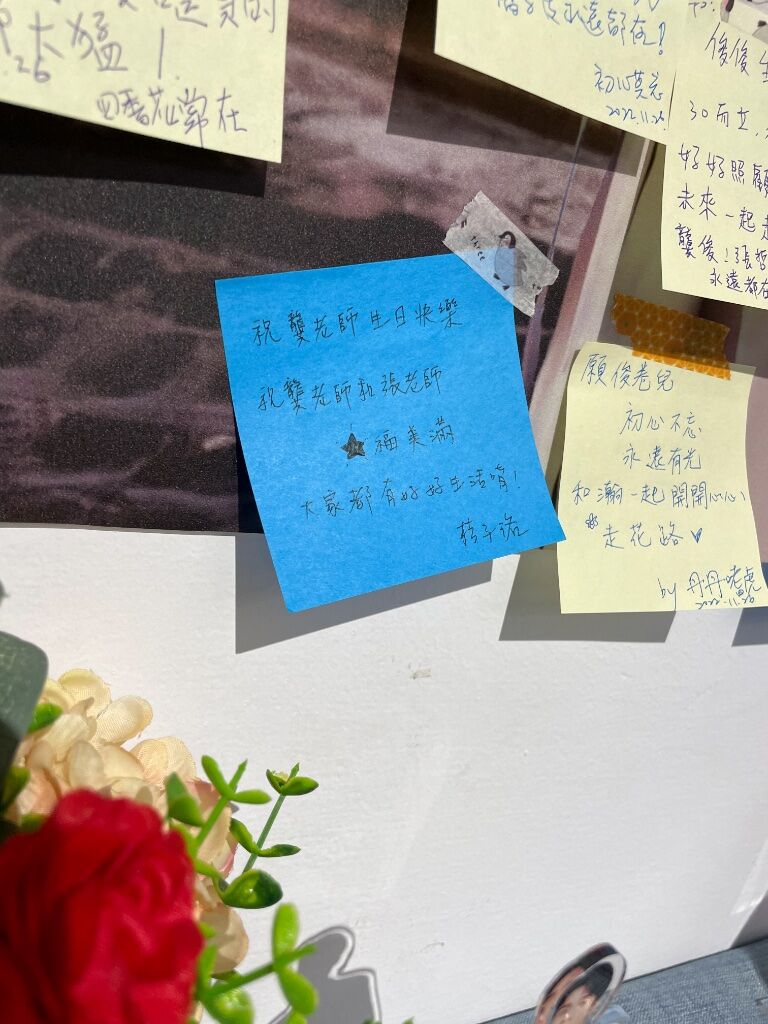 太猛！
.26
常在
永遠都在！
初心莫忘
2022.11.26
俊俊
30而立，
好好照顧
未來一起走
龔俊！張哲
永遠都在
祝龔老師生日快樂
祝龔老師和張老師
★福美滿
大家都有好好生活唷！
願俊卷兒
初心不忘
永遠有光
和瀚一起開開心心
走花路♥
by 丹丹嗯虎